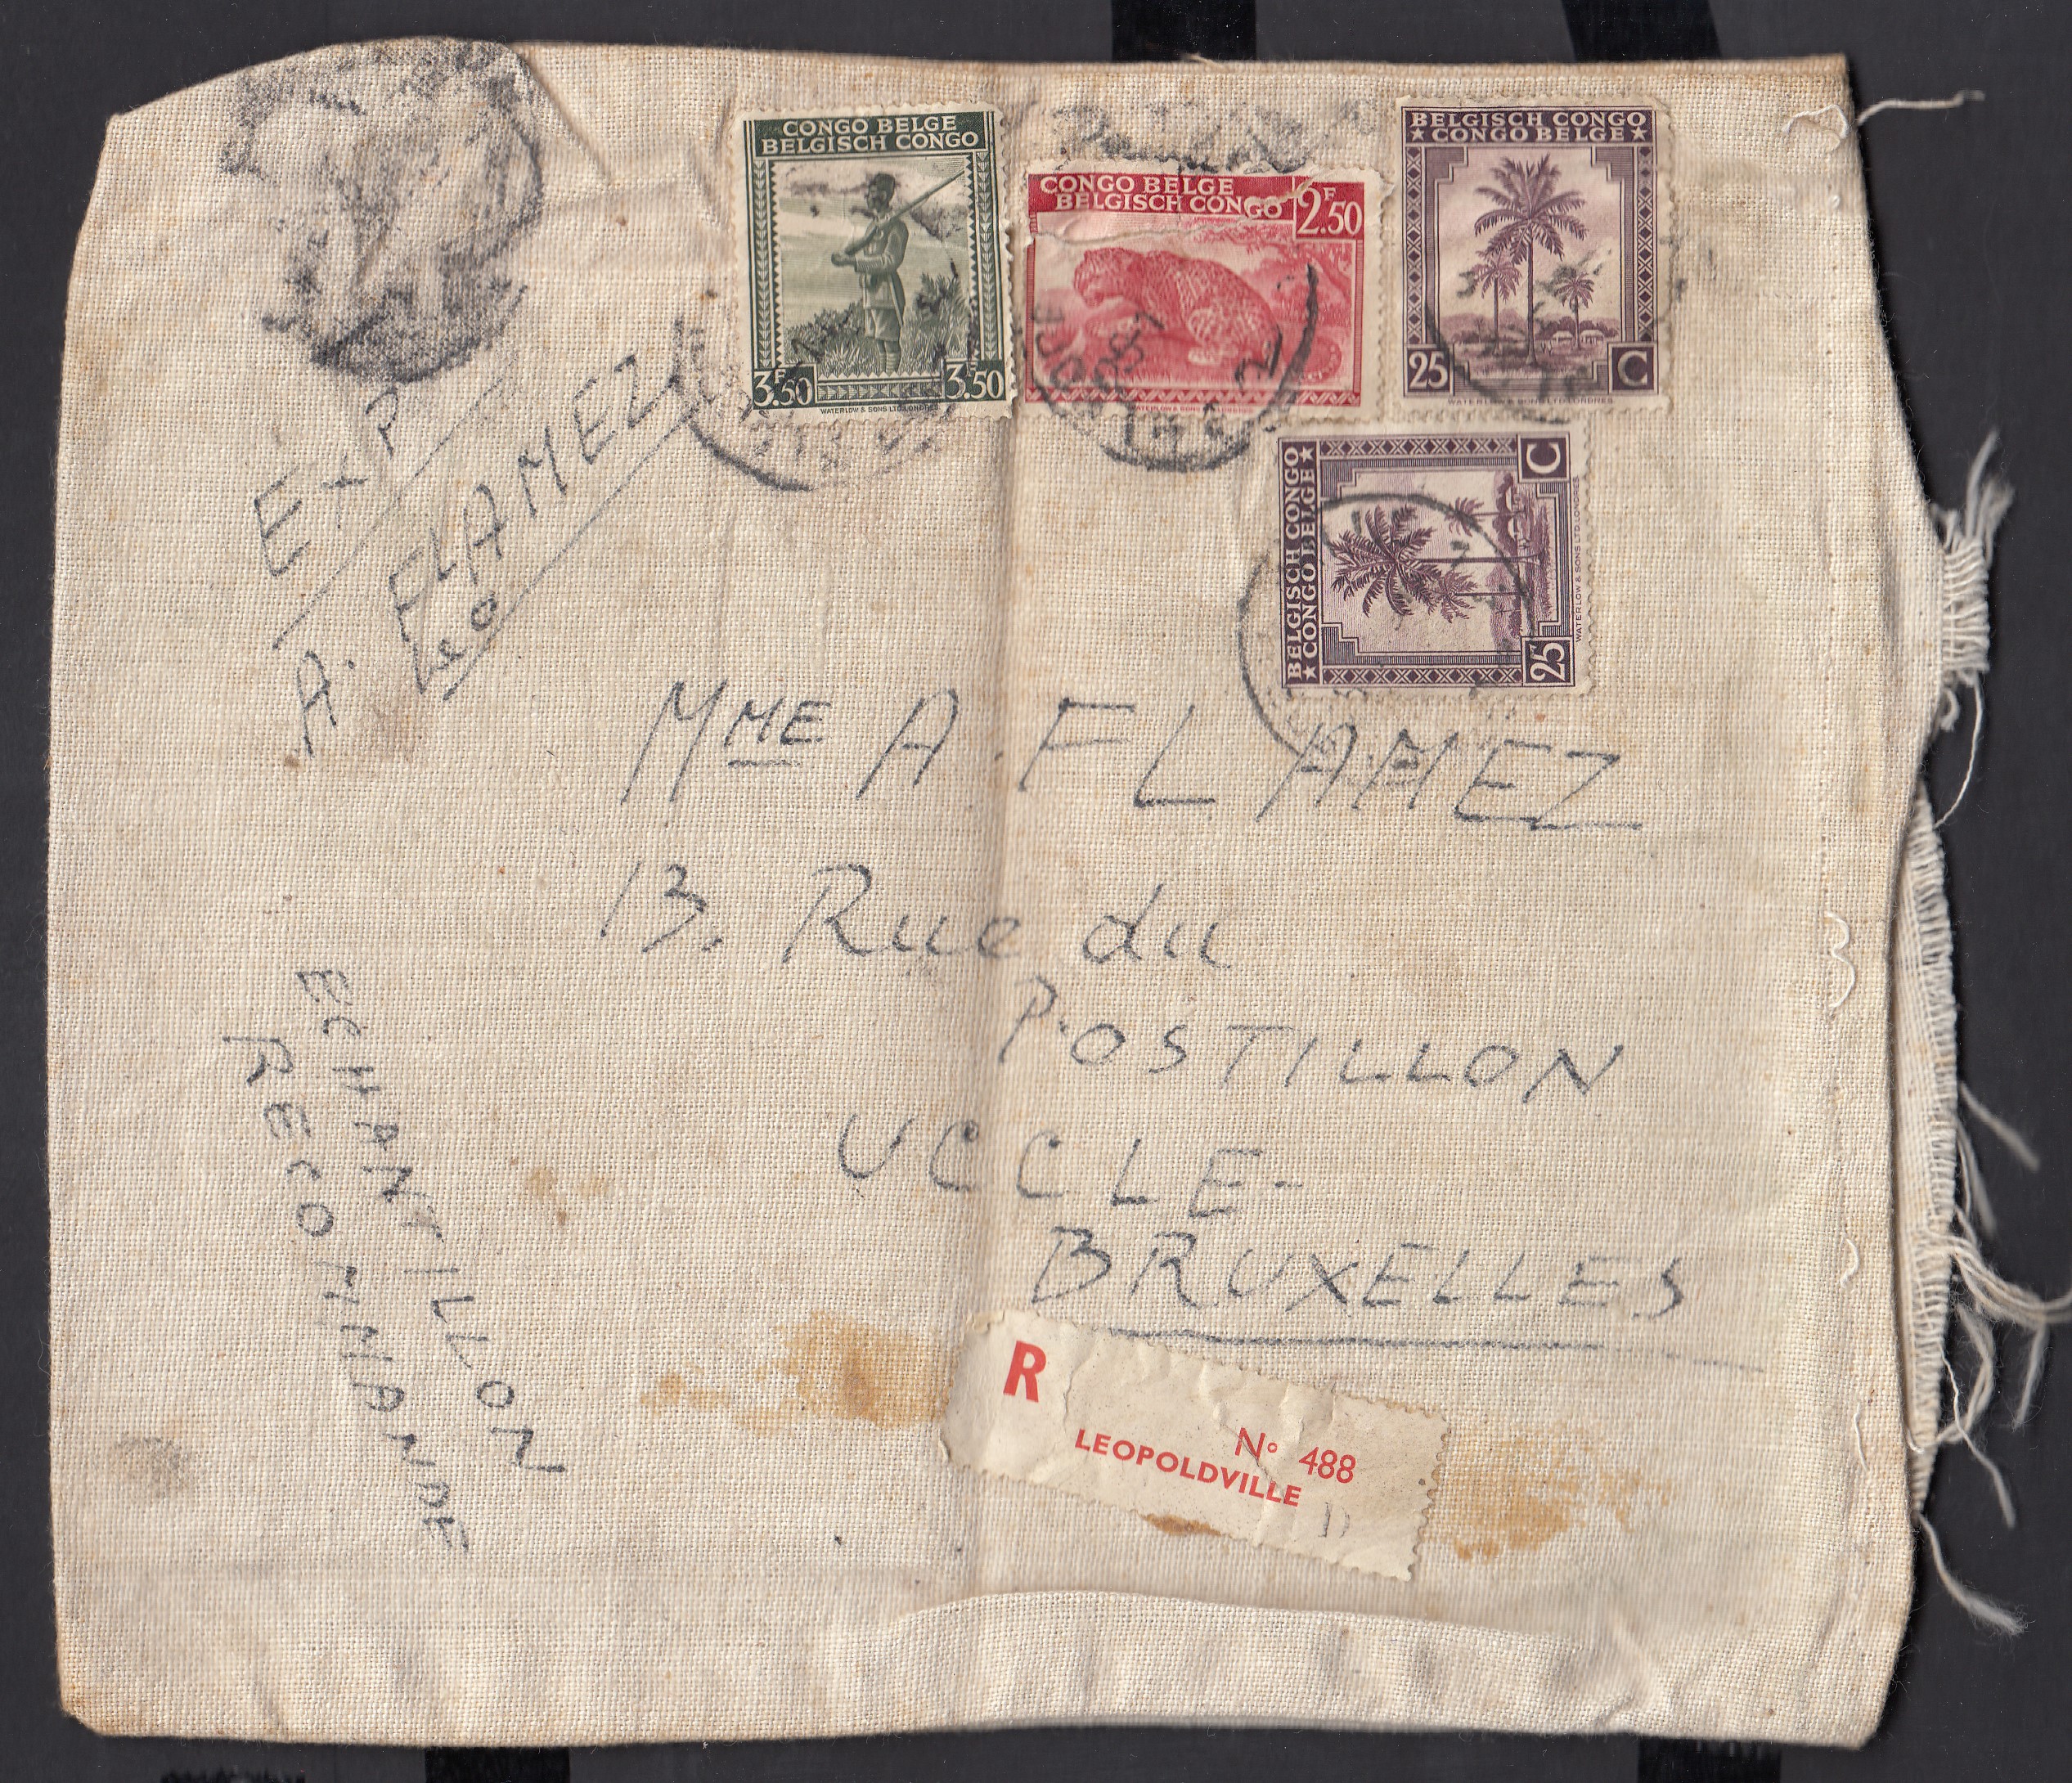 CONGO BELGE
BELGISCH CONGO
3F.50
3.50
WATERLOW & SONS LTD. LONDRES
CONGO BELGE
BELGISCH CONGO
2F.50
WATERLOW & SONS LTD. LONDRES
BELGISCH CONGO
★ CONGO BELGE ★
25 C
WATERLOW & SONS LTD. LONDRES
BELGISCH CONGO
★ CONGO BELGE ★
25 C
WATERLOW & SONS LTD LONDRES
EXP
A. FLAMEZ
Leo
MME A. FLAMEZ
13, Rue du
POSTILLON
UCCLE-
BRUXELLES
ECHANTILLON
RECOMMANDE
R
No 488
LEOPOLDVILLE